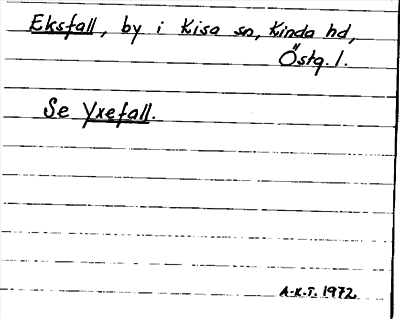 Eksfall, by i Kisa sn, Kinda hd,
Östg. l.
Se Yxefall.
A-K.T. 1972